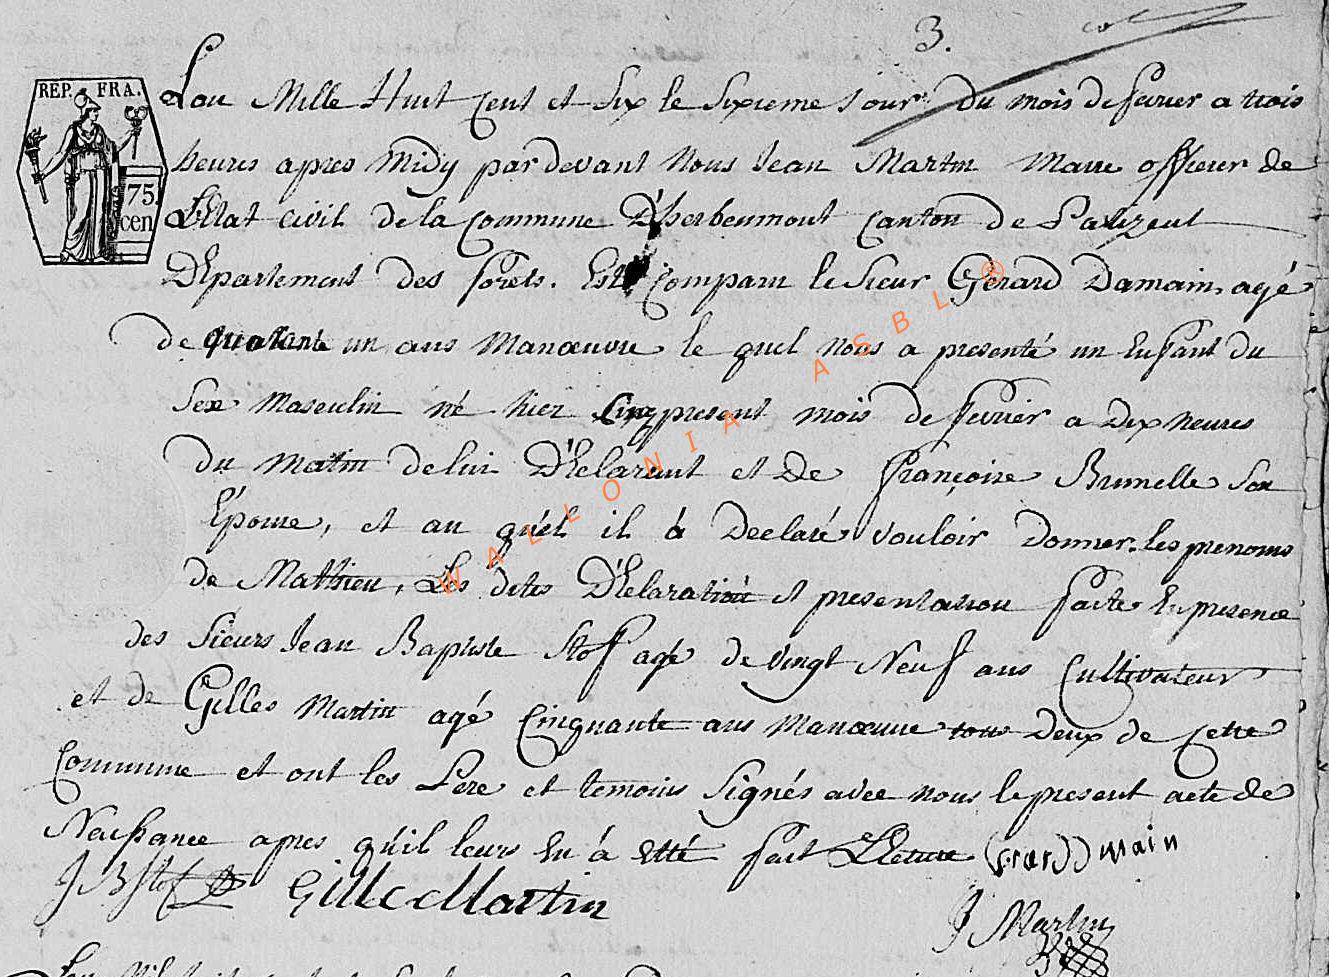 3.
REP. FRA.
75.
cen
L'an Mille Huit Cent et Six le Sixieme Jour du mois de fevrier a trois
heures apres Midy pardevant Nous Jean Martin Maire officier de
L'Etat Civil de la Commune D'herbeumont Canton de Palizeul
Département des forets. Est Comparu le Sieur Gérard Damain, agé
de quarante un ans Manœuvre le quel nous a presenté un Enfant du
Sex Masculin né hier Cinq present mois de fevrier a Dix heures
du matin de lui D'Eclarant et De Françoise Brunelle Son
Epouse, et au qu'el il à Declaré vouloir Donner les prenoms
de Mathieu, Les dites D'Eclaration et presentation faite En presence
des Sieurs Jean Baptiste Stof agé de Vingt Neuf ans Cultivateur
et de Gilles Martin agé Cinquante ans Manœuvre tous Deux de Cette
Commune et ont les Pere et temoins Signés avec nous le present acte de
Naissance apres qu'il leurs En à Etté fait Lecture
main
J B Stof Gille Martin
J Martin
WALLONIA ASBL ®